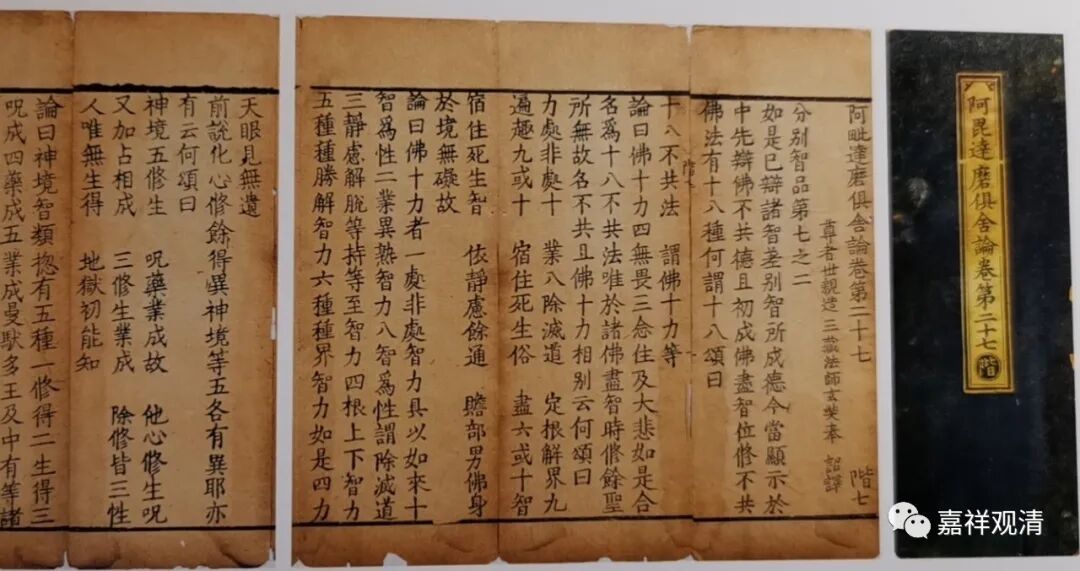 阿毘達磨俱舍論卷第二十七 階
阿毗達磨俱舍論卷第二十七 階七
尊者世親造 三藏法師玄奘奉 詔譯
分別智品第七之二
如是已辯諸智差別智所成德今當顯示於
中先辯佛不共德且初成佛盡智位修不共
佛法有十八種何謂十八頌曰
十八不共法 謂佛十力等
論曰佛十力四無畏三念住及大悲如是合
名爲十八不共法唯於諸佛盡智時修餘聖
所無故名不共且佛十力相別云何頌曰
力處非處十 業八除滅道 定根解界九
遍趣九或十 宿住死生俗 盡六或十智
宿住死生智 依靜慮餘通 贍部男佛身
於境無礙故
論曰佛十力者一處非處智力具以如來十
智爲性二業異熟智力八智爲性謂除滅道
三靜慮解脫等持等至智力四根上下智力
五種種勝解智力六種種界智力如是四力
天眼見無遺
前說化心修餘得異神境等五各有異耶亦
有云何頌曰
神境五修生 呪藥業成故 他心修生呪
又加占相成 三修生業成 除修皆三性
人唯無生得 地獄初能知
論曰神境智類揔有五種一修得二生得三
呪成四藥成五業成曼馱多王及中有等諸
嘉祥观清